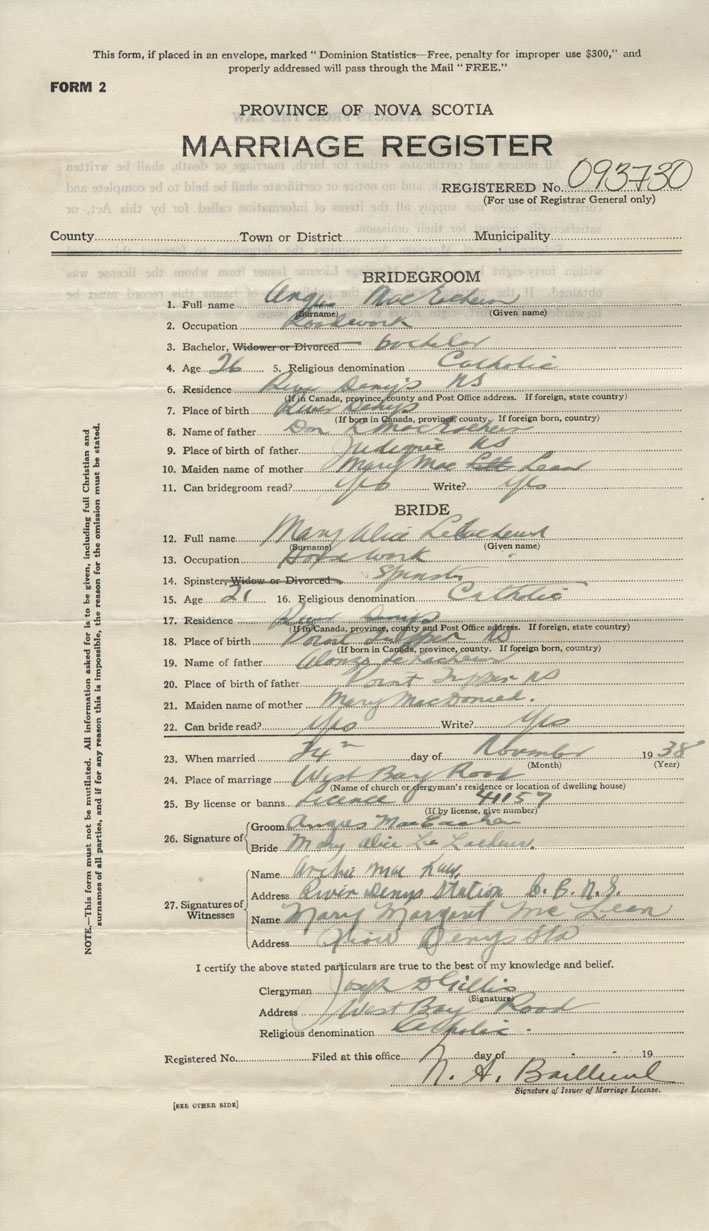 This form, if placed in an envelope, marked "Dominion Statistics—Free, penalty for improper use $300," and
properly addressed will pass through the Mail "FREE."
FORM 2
PROVINCE OF NOVA SCOTIA
MARRIAGE REGISTER
REGISTERED No. 093730
(For use of Registrar General only)
County Town or District Municipality
BRIDEGROOM
1. Full name Angus MacEachern
(Surname) (Given name)
2. Occupation
3. Bachelor, Widower or Divorced bachelor
4. Age 26 5. Religious denomination Catholic
6. Residence River Denys NS
(If in Canada, province, county and Post Office address. If foreign, state country)
7. Place of birth River Denys
(If born in Canada, province, county. If foreign born, country)
8. Name of father Dan MacEachern
9. Place of birth of father Judique NS
10. Maiden name of mother Mary Mac Lean
11. Can bridegroom read? Yes Write? Yes
BRIDE
12. Full name Mary Alice
(Surname) (Given name)
13. Occupation House work
14. Spinster, Widow or Divorced Spinster
15. Age 21 16. Religious denomination Catholic
17. Residence River Denys
(If in Canada, province, county and Post Office address. If foreign, state country)
18. Place of birth Point Tupper NS
(If born in Canada, province, county. If foreign born, country)
19. Name of father
20. Place of birth of father Point Tupper NS
21. Maiden name of mother Mary MacDonald.
22. Can bride read? Yes Write? Yes
23. When married 24th day of November 1938
(Month) (Year)
24. Place of marriage West Bay Road
(Name of church or clergyman's residence or location of dwelling house)
25. By license or banns Licence 41157
(If by license, give number)
26. Signature of Groom Angus MacEachern
Bride Mary Alice
27. Signatures of Witnesses Name Archie Mac Kay
Address River Denys Station C. B. N. S.
Name Mary Margaret Mc Lean
Address River Denys Sta
I certify the above stated particulars are true to the best of my knowledge and belief.
Clergyman Joseph D Gillis
(Signature)
Address West Bay Road
Religious denomination Catholic.
Registered No. Filed at this office day of 19
N. A.
Signature of Issuer of Marriage License.
[SEE OTHER SIDE]
NOTE.—This form must not be mutilated. All information asked for is to be given, including full Christian and
surnames of all parties, and if for any reason this is impossible, the reason for the omission must be stated.